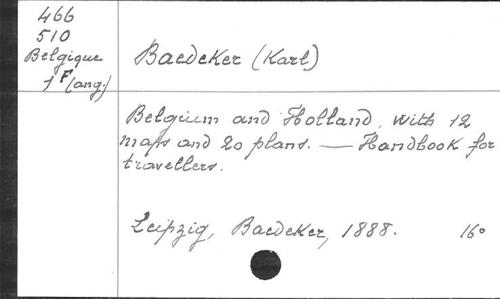 466
510
Belgique
1 F (ang.)
Baedeker (Karl)
Belgium and Holland. With 12
maps and 20 plans. — Handbook for
travellers.
Leipzig, Baedeker, 1888. 16°